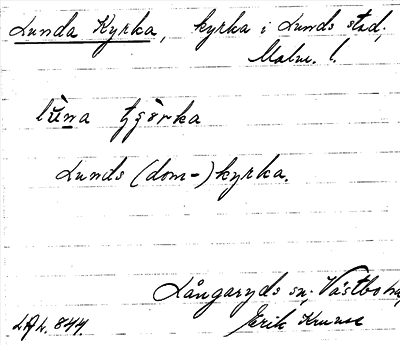 Lunda Kyrka, kyrka i Lunds stad,
Malm. l.
lùna tjɵ̀rka
Lunds (dom-) kyrka.
Långaryds sn, Västbo hd
LAL. 844. Erik